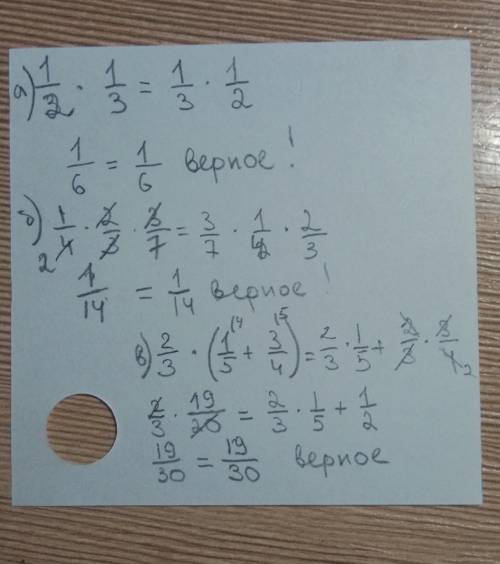 а) 1/2 · 1/3 = 1/3 · 1/2
1/6 = 1/6 верное!
б) 1/4 · 2/3 · 3/7 = 3/7 · 1/4 · 2/3
2
1/14 = 1/14 верное!
в) 2/3 · (1/5 + 3/4) = 2/3 · 1/5 + 2/3 · 3/4 2
2/3 · 19/20 = 2/3 · 1/5 + 1/2
19/30 = 19/30 верное